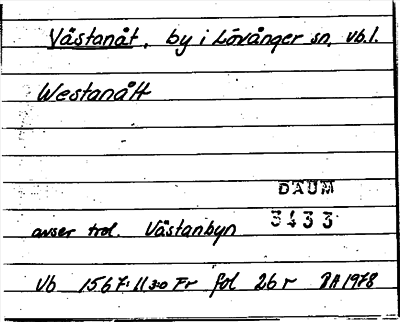 Västanåt, by i Lövånger sn, Vb.l.
Westanått
DAUM
3433
avser trol. Västanbyn
Vb 1567:11 Fr fol 26r RA 1978